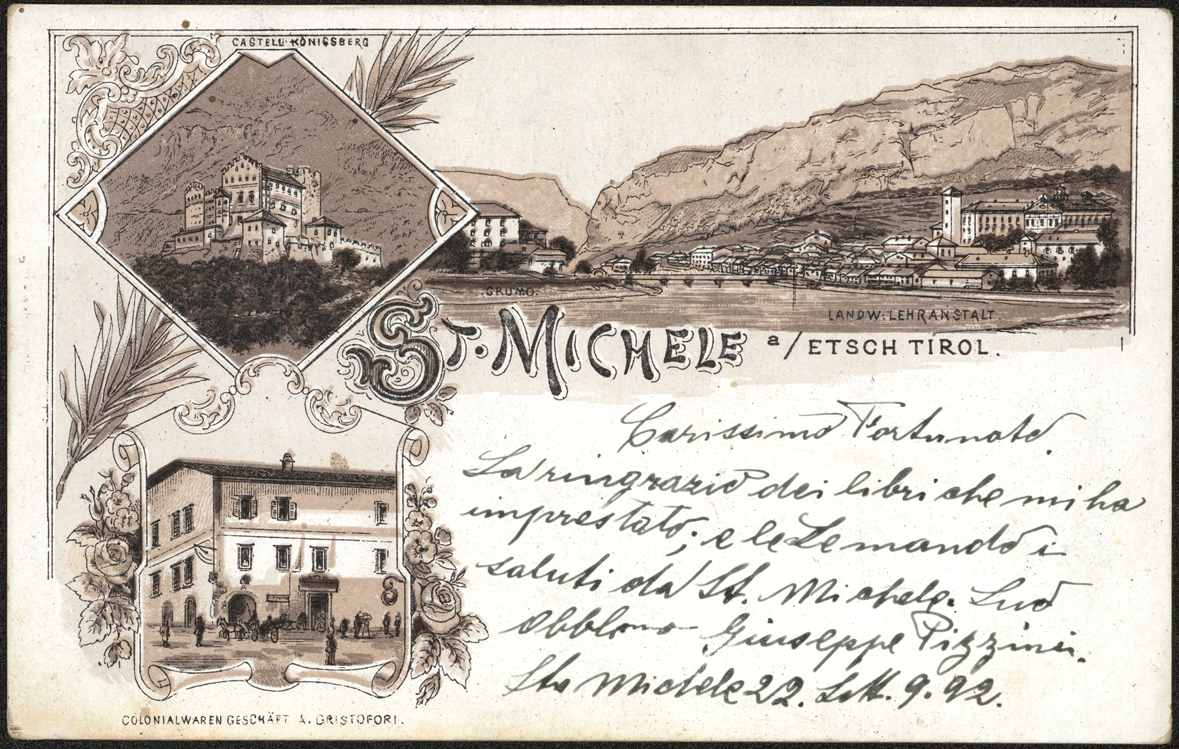 CASTELL KÖNIGSBERG
GRUMO.
LANDW. LEHRANSTALT.
ST. MICHELE a/ETSCH TIROL.
Carissimo Fortunato
La ringrazio dei libri che mi ha
imprestato, e le Le mando i
saluti da St. Michele. Suo
Giuseppe Pizzini.
St. Michele 22. Sett. 9. 92.
COLONIALWAREN GESCHÄFT A. CRISTOFORI.